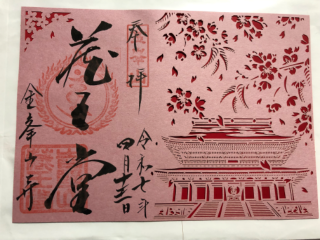 奉拝
令和七年
四月十三日
蔵王堂
金峯山寺